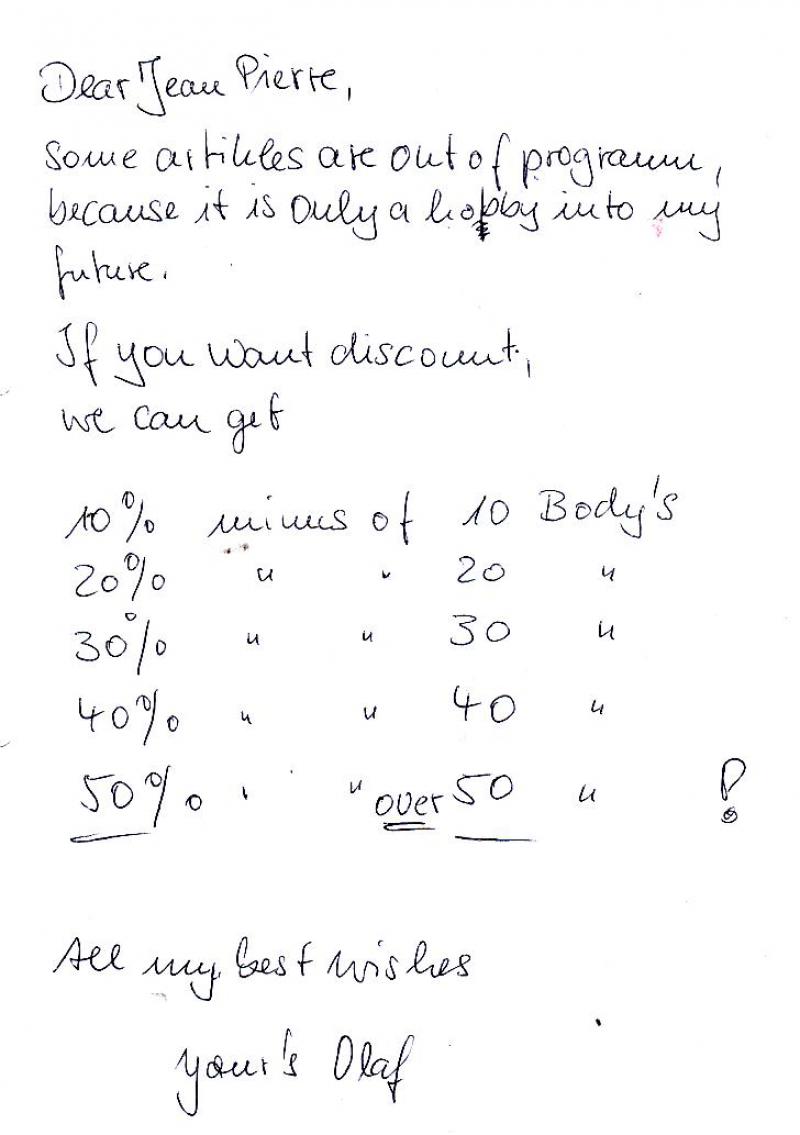 Dear Jean Pierre,
some artikles are out of programm,
because it is only a hobby into my
future.
If you want discount,
we can get
10% minus of 10 Body's
20% " " 20 "
30% " " 30 "
40% " " 40 "
50% " " over 50 " !
All my best wishes
your's Olaf